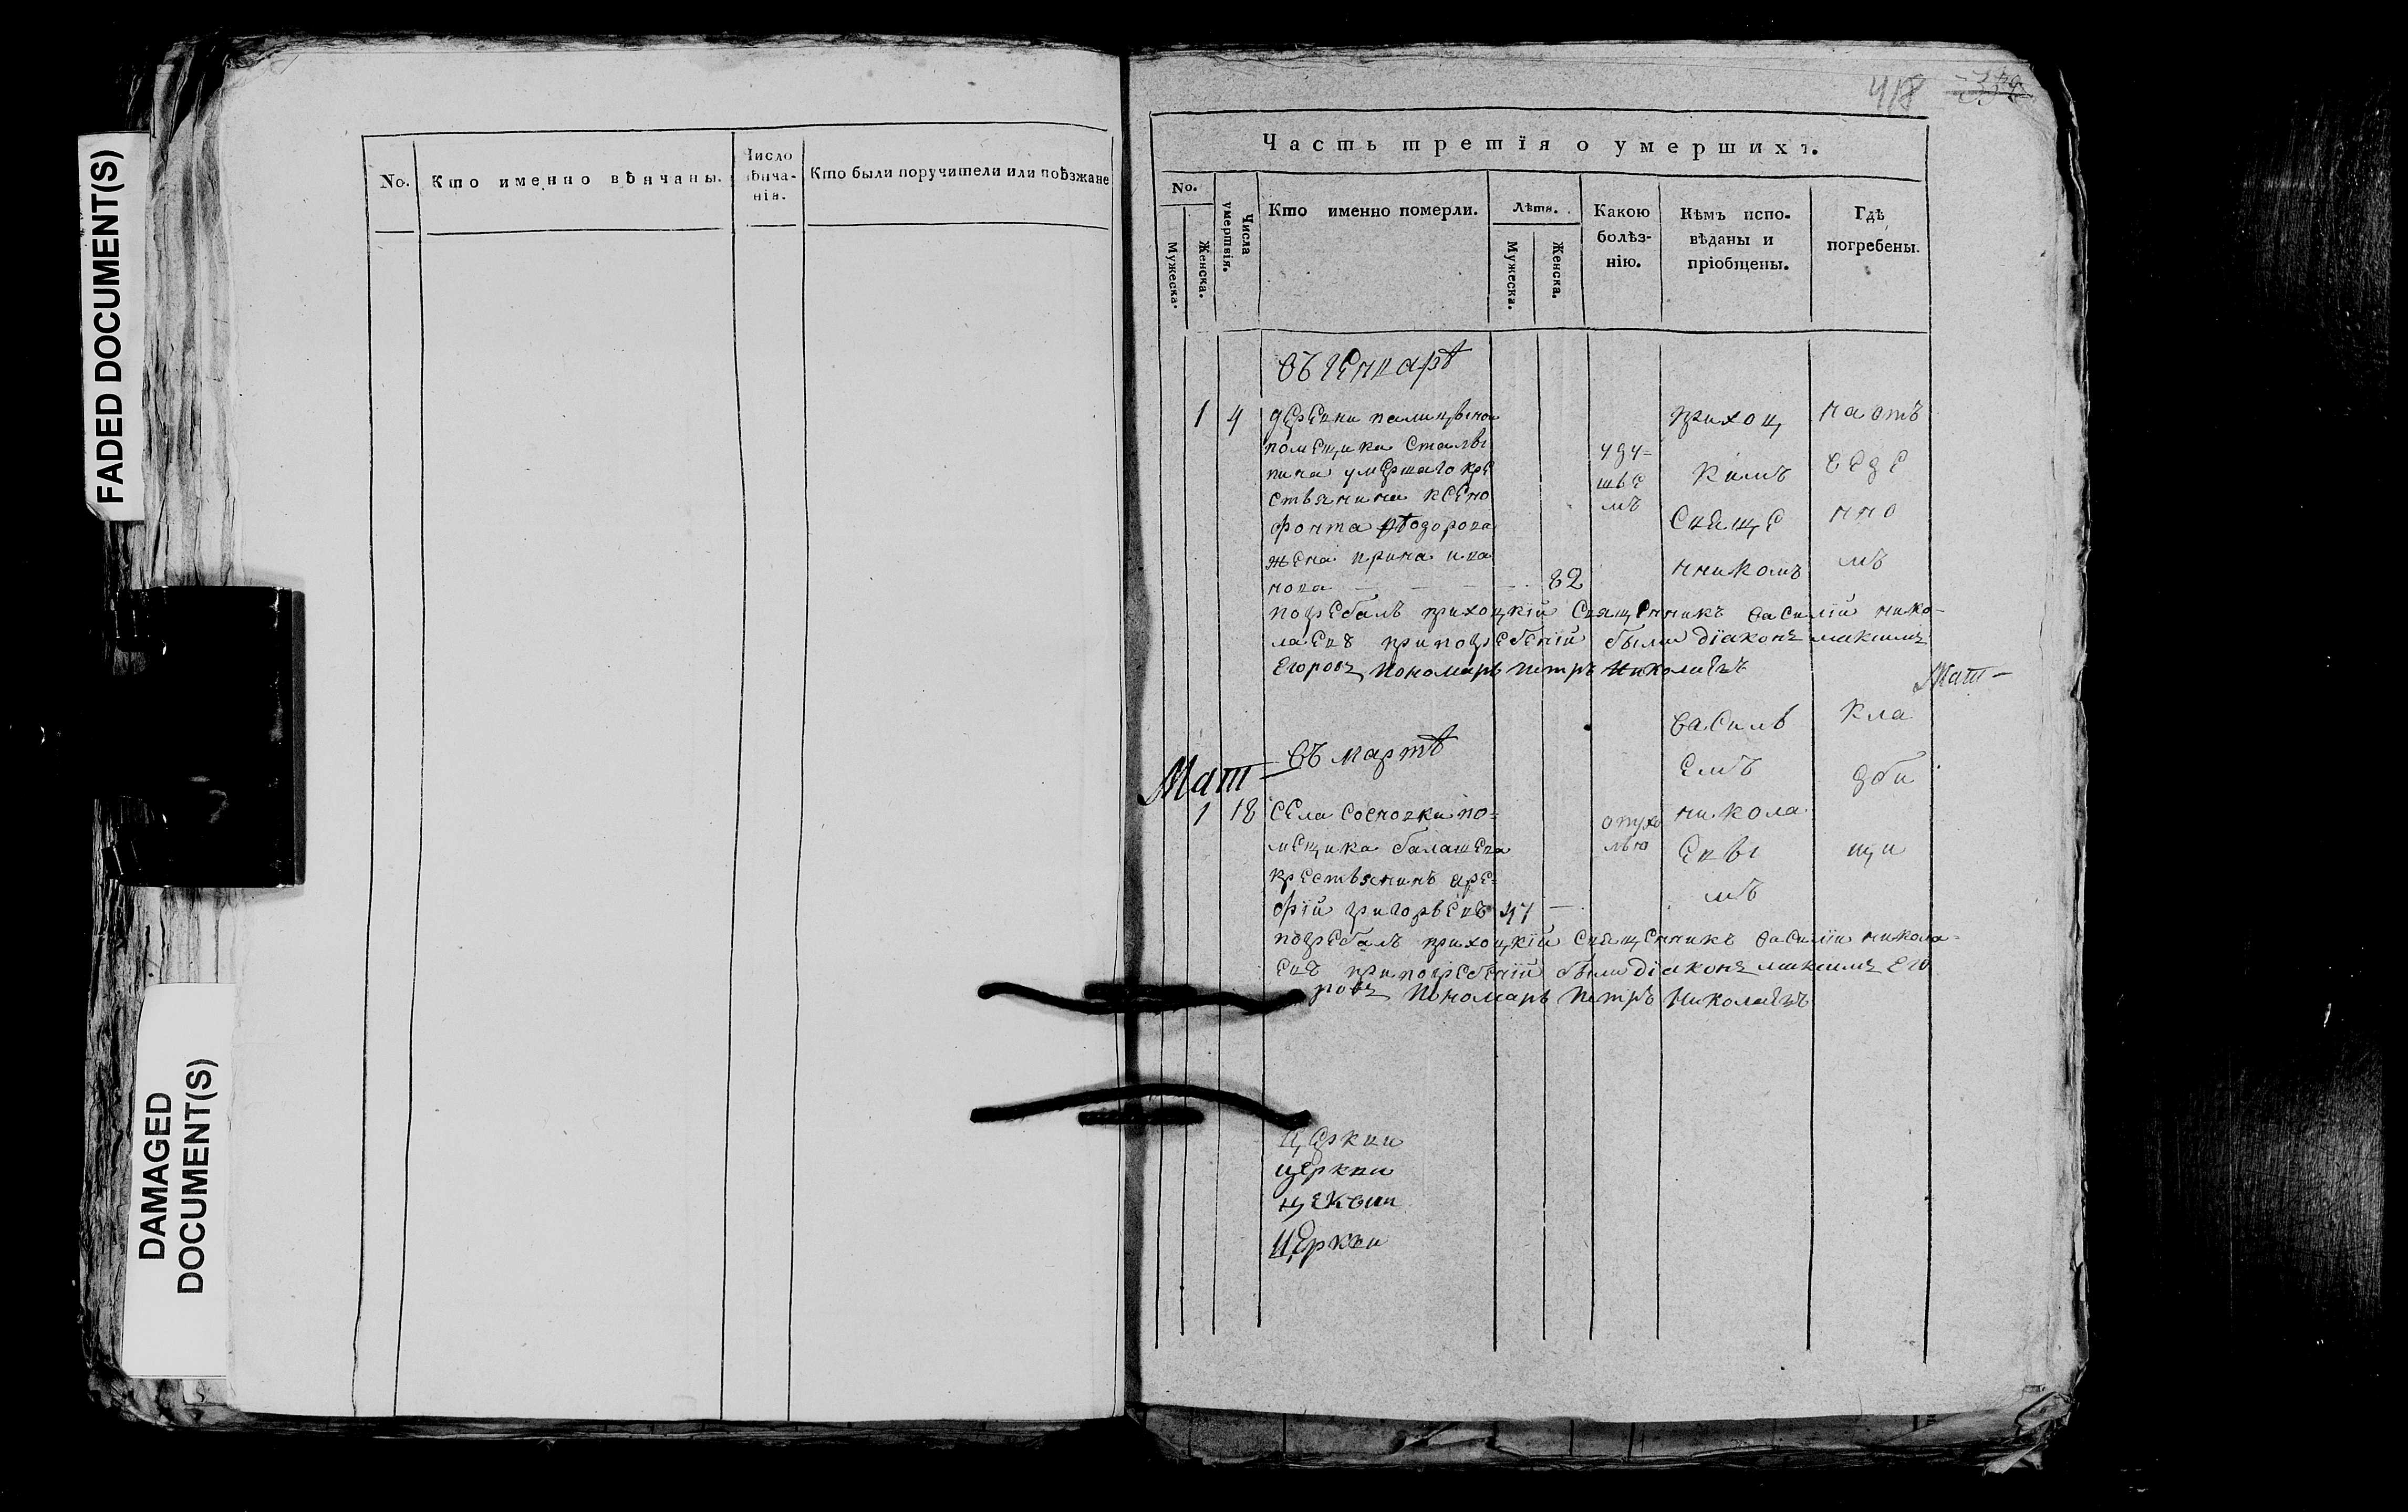 FADED DOCUMENT(S)
DAMAGED
DOCUMENT(S)
No.
Кто именно вѣнчаны.
Число
вѣнча-
нія.
Кто были поручители или поѣзжане
418
Часть третія о умершихъ.
No.
Мужеска.
Женска.
Числа
умертвія.
Кто именно померли.
Лѣта.
Мужеска.
Женска.
Какою
болѣз-
нію.
Кѣмъ испо-
вѣданы и
пріобщены.
Гдѣ
погребены.
въ генварѣ
1 4 деревни
помещика Столы
пина умершаго кре
стьянина ксено
фонта Ѳеодорова
жена ирина ива
нова 82
уду-
шье
мъ
приход
кимъ
свяще
нникомъ
на отъ
веде
нно
мъ
погребалъ приходкій священникъ василій нико-
лаевъ при погребеніи были діаконъ максимъ
Егоровъ Пономарь Петръ Николаевъ
Мат-
василь
емъ
никола
евы
мъ
кла
дби
щи
въ мартѣ
Мат-
1 18 села Сосновки по-
мещика балашева
крестьянинъ аре-
фій григорьевъ 47 —
опухо
лью
погребалъ приходкій священникъ василій никола-
евъ при погребеніи были діаконъ максимъ Его
ровъ Пономарь Петръ Николаевъ
церкви
церкви
цеквии
Церкви